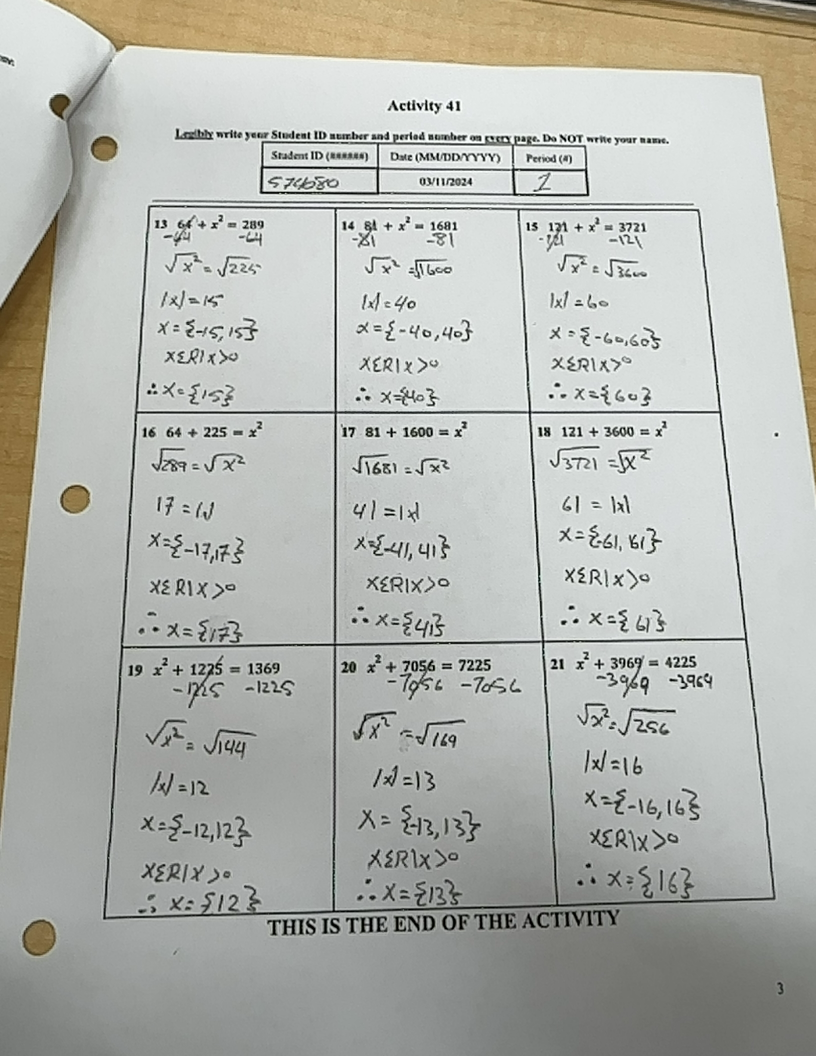 Activity 41
Legibly write your Student ID number and period number on every page. Do NOT write your name.
Student ID (######) Date (MM/DD/YYYY) Period (#)
574680 03/11/2024 1
13 64 + x² = 289
-64 -64
√x² = √225
|x| = 15
x = {-15, 15}
xεR|x>0
∴ x = {15}
14 81 + x² = 1681
-81 -81
√x² = √1600
|x| = 40
x = {-40, 40}
xεR|x>0
∴ x={40}
15 121 + x² = 3721
-121 -121
√x² = √3600
|x| = 60
x = {-60, 60}
xεR|x>0
∴ x = {60}
16 64 + 225 = x²
√289 = √x²
17 = |x|
x = {-17, 17}
xεR|x>0
∴ x = {17}
17 81 + 1600 = x²
√1681 = √x²
41 = |x|
x={-41, 41}
xεR|x>0
∴ x = {41}
18 121 + 3600 = x²
√3721 = √x²
61 = |x|
x = {-61, 61}
xεR|x>0
∴ x = {61}
19 x² + 1225 = 1369
-1225 -1225
√x² = √144
|x| = 12
x = {-12, 12}
xεR|x>0
∴ x = {12}
20 x² + 7056 = 7225
-7056 -7056
√x² = √169
|x| = 13
x = {-13, 13}
xεR|x>0
∴ x = {13}
21 x² + 3969 = 4225
-3969 -3969
√x² = √256
|x| = 16
x = {-16, 16}
xεR|x>0
∴ x = {16}
THIS IS THE END OF THE ACTIVITY
3